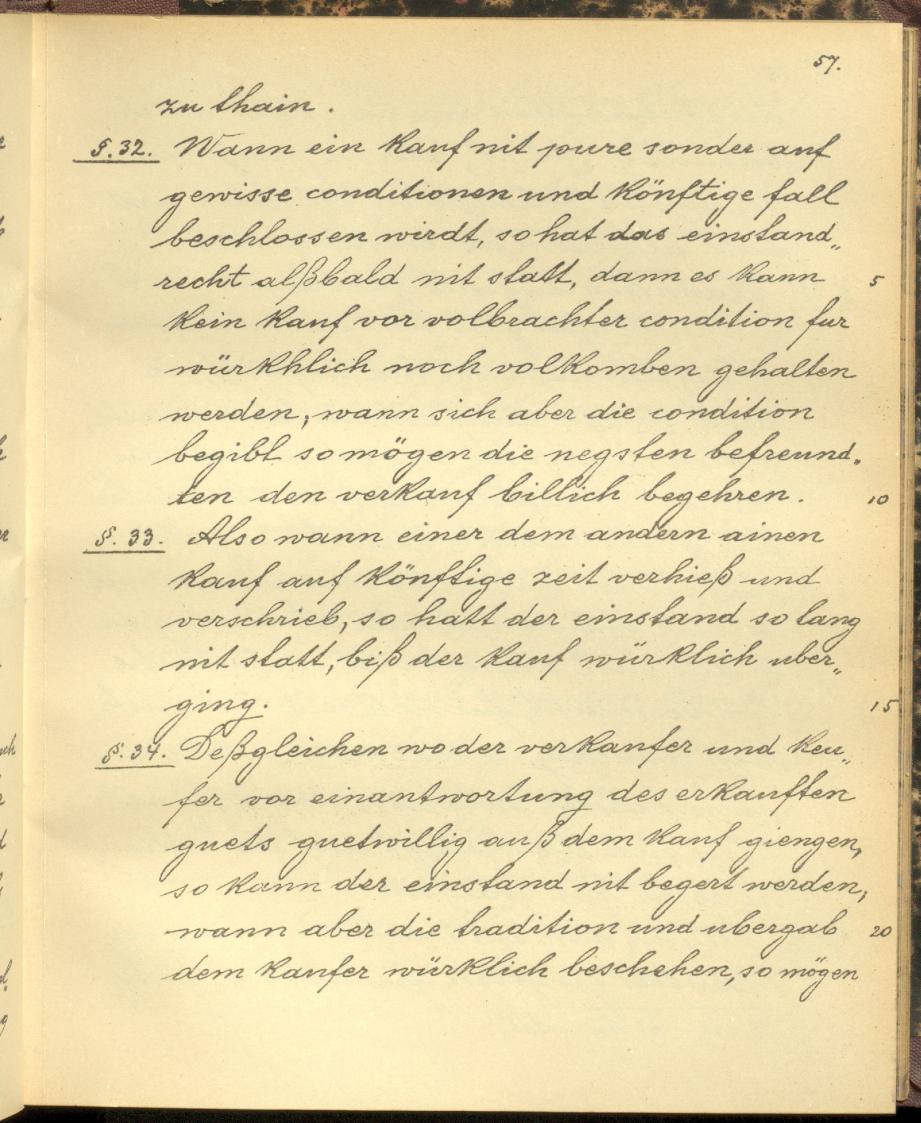 57.
zu thain.
§. 32. Wann ein Kauf nit pure sonder auf
gewisse conditionen und könftige fall
beschlossen wirdt, so hat das einstand„
recht alßbald nit statt, dann es kann 5
kein Kauf vor volbrachter condition fur
würkhlich noch volkomben gehalten
werden, wann sich aber die condition
begibt so mögen die negsten befreund„
ten den verkauf billich begehren. 10
§. 33. Also wann einer dem andern ainen
Kauf auf könftige zeit verhieß und
verschrieb, so hatt der einstand so lang
nit statt, biß der Kauf würklich uber„
ging. 15
§. 34. Deßgleichen wo der verkaufer und keu„
fer vor einantwortung des erkauften
guets guetwillig auß dem Kauf giengen,
so kann der einstand nit begert werden,
wann aber die tradition und ubergab 20
dem Kaufer würklich beschehen, so mögen